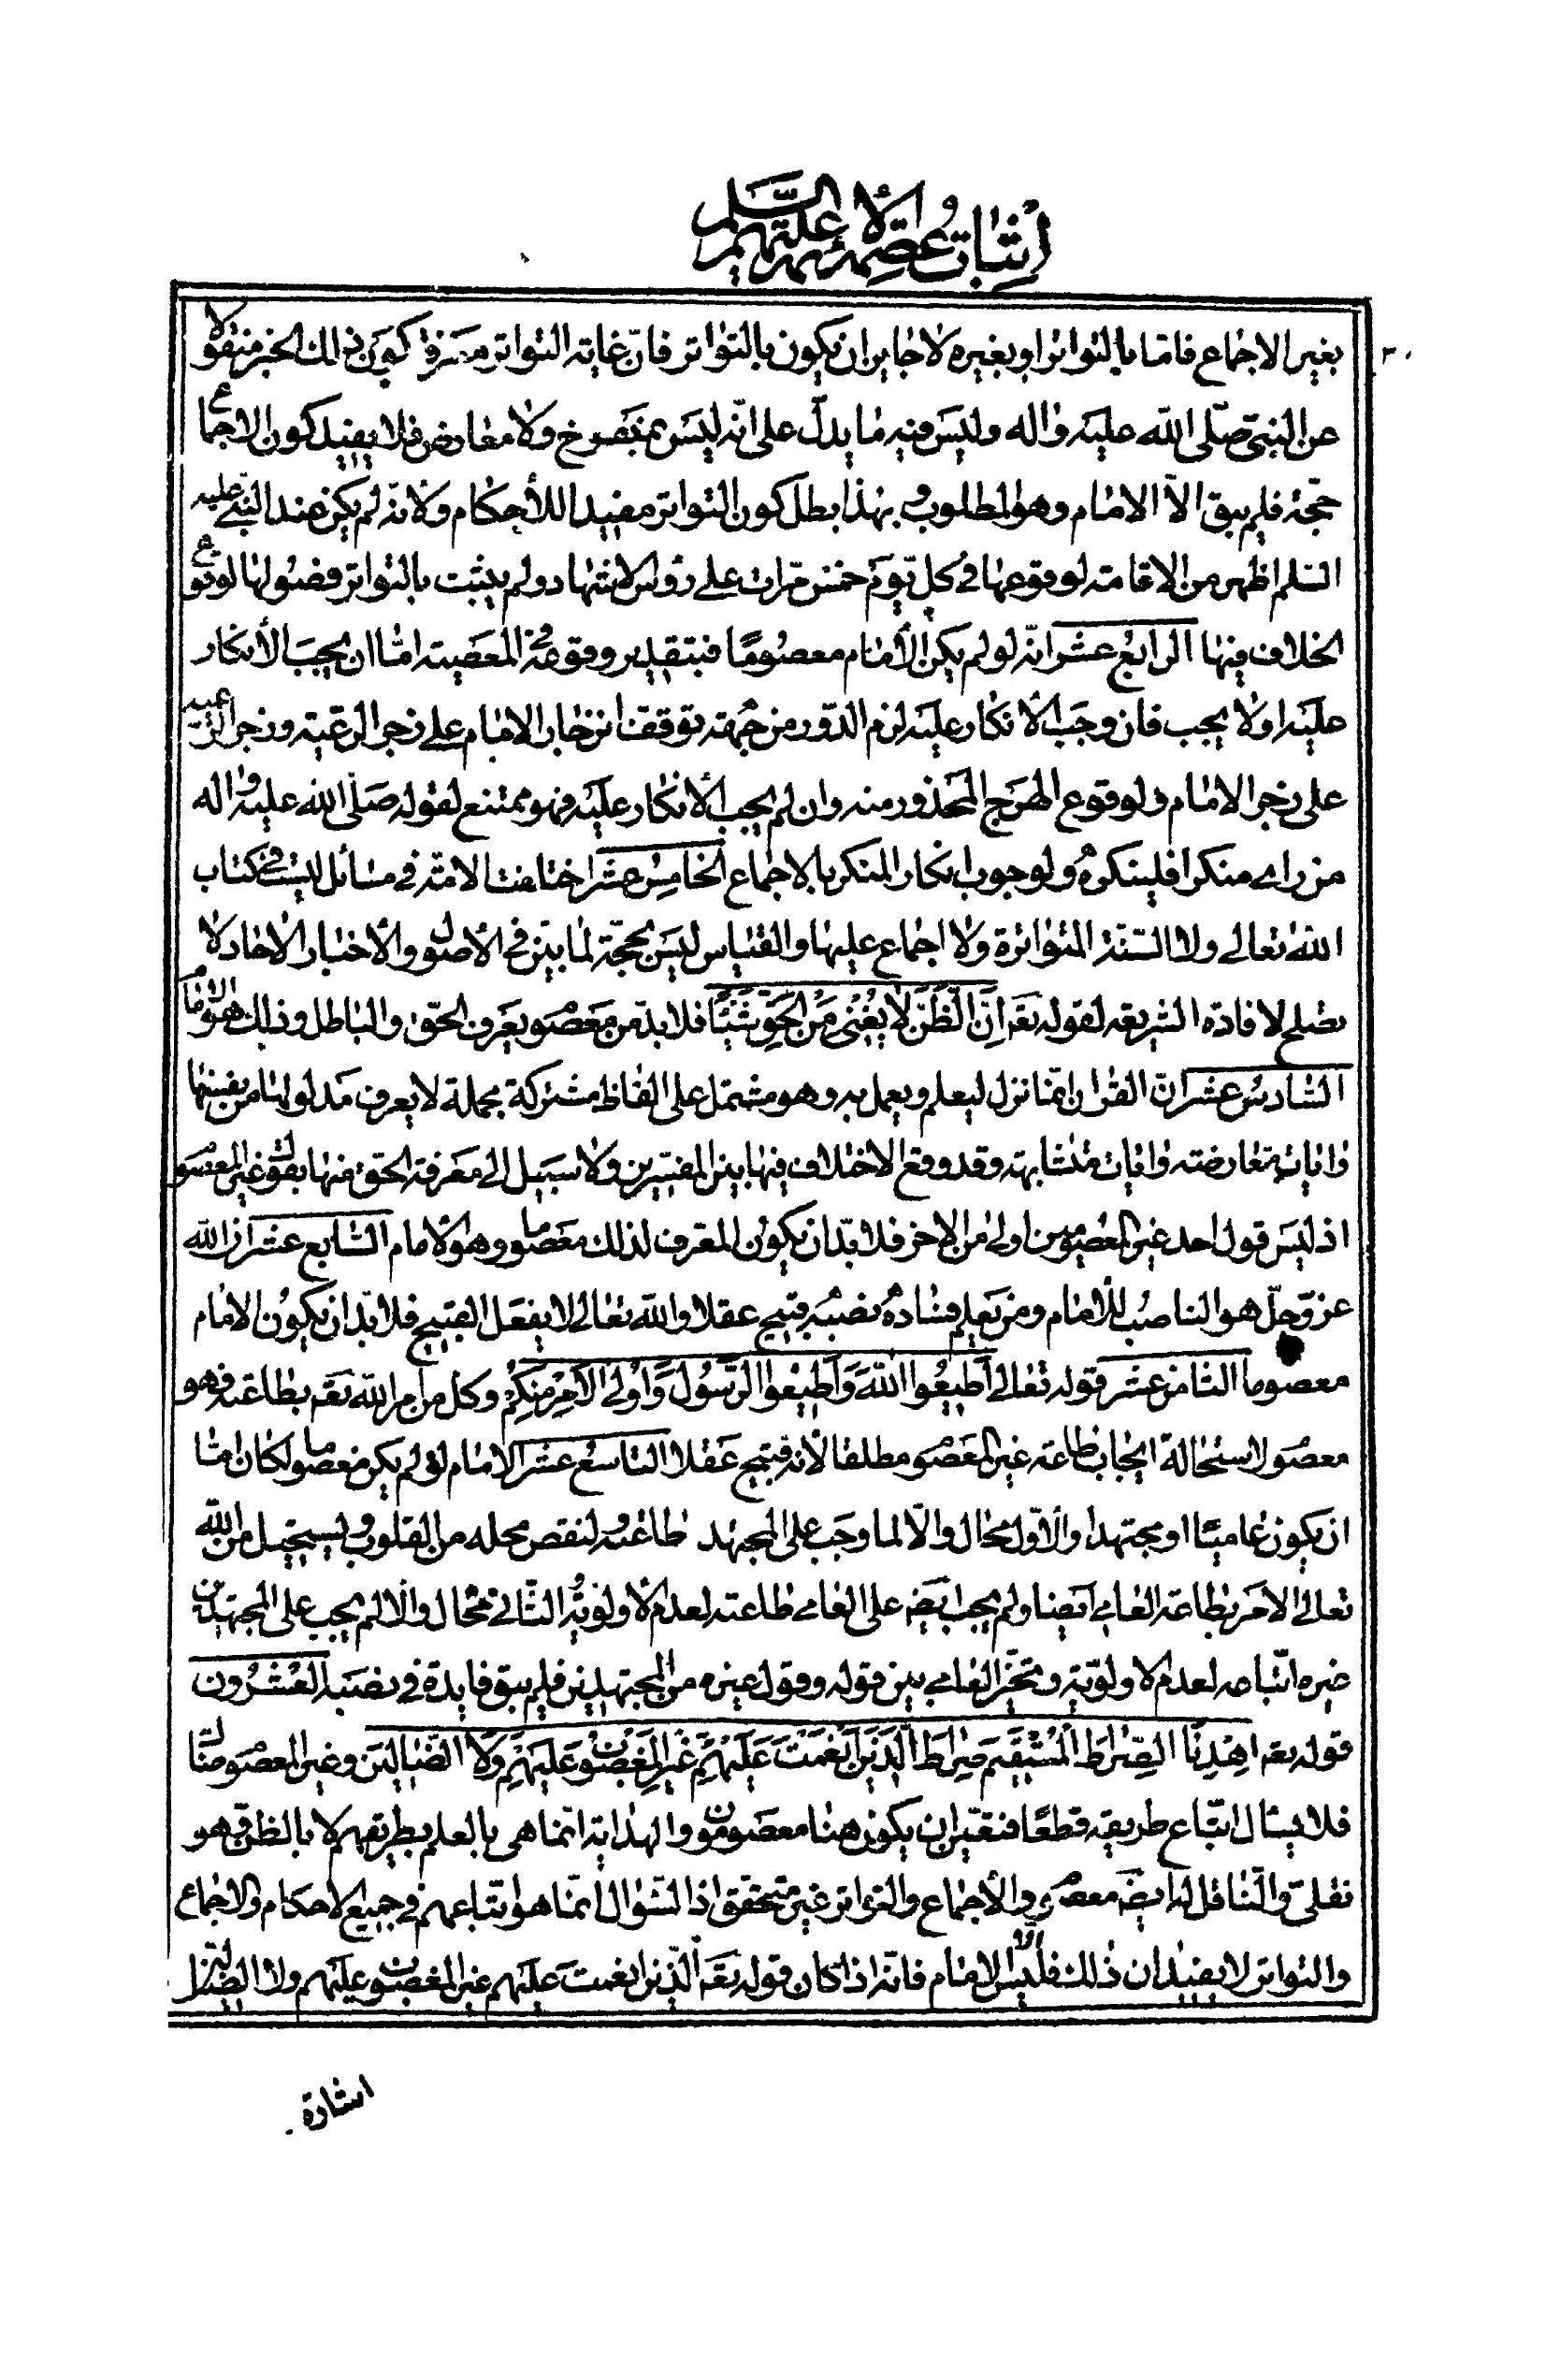 اثبات عصمة الأئمة عليهم السلم
٣٠
بغير الاجماع فامّا بالتواتر او بغيره لا جايز ان يكون بالتواتر فانّ غاية التواتر معرفة كون ذلك الخبر منقولا
عن النبىّ صلّى اللّه عليه واله وليس فيه ما يدلّ على انّه ليس بمنسوخ ولا معارض فلا يفيد كون الاجماع
حجّة فلم يبق الّا الامام وهو المطلوب وبهذا بطل كون التواتر مفيدا للأحكام ولانه لم يكن عند النبى عليه
السلم اظهر من الاقامة لوقوعها فى كل يوم خمس مرّات على رؤس الاشهاد ولم يثبت بالتواتر فصولها لوقوع
الخلاف فيها الرابع عشر انّه لو لم يكن الأمام معصومًا فبتقدير وقوع المعصية امّا ان يجب الأنكار
عليه اولا يجب فان وجب الانكار عليه لزم الدّور من جهة توقف انزجار الامام على زجر الرعية وزجر الرعية
على زجر الامام ولوقوع الهرج المحذور منه وان لم يجب الأنكار عليه فهو ممتنع لقوله صلّى اللّه عليه واله
من راى منكرا فلينكره ولوجوب انكار المنكر بالاجماع الخامس عشر اختلفت الامّة فى مسائل ليست فى كتاب
اللّه تعالى ولا السّنّة المتواترة ولا اجماع عليها والقياس ليس بحجّة لما بيّن فى الأصول والأخبار الاحاد لا
تصلح لافادة الشريعة لقوله تعم اِنَّ الظَّنَّ لا يُغْنى مِنَ الْحَقِّ شَيْئًا فلا بد من معصوم يعرف الحقّ والباطل وذلك هو الامام
السّادس عشر انّ القرآن انّما نزل ليعلم ويعمل به وهو مشتمل على الفاظ مشتركة مجملة لا يعرف مدلولها من نفسها
وايات متعارضة وايات متشابهة وقد وقع الاختلاف فيها بين المفسّرين ولا سبيل الى معرفة الحق منها بقول غير المعصوم
اذ ليس قول احد غير المعصومين اولى من الاخر فلا بدّ ان يكون المعرف لذلك معصوما وهو الامام السّابع عشر ان اللّه
عز وجلّ هو الناصب للأمام ومن يعلم فساده نصبه قبيح عقلا واللّه تعالى لا يفعل القبيح فلا بدّ ان يكون الامام
معصوما الثامن عشر قوله تعالى اَطيعُوا اللّهَ وَاَطيعُوا الرَّسُولَ وَاُولِى الْاَمْرِ مِنْكُمْ وكل من امر اللّه تعم بطاعته فهو
معصوم لاستحالة ايجاب طاعة غير المعصوم مطلقا لأنه قبيح عقلا التاسع عشر الامام لو لم يكن معصوما لكان امّا
ان يكون عاميّا او مجتهدا والأوّل محال والّا لما وجب على المجتهد طاعته ولنقص محله من القلوب ويستحيل من اللّه
تعالى الأمر بطاعة العامى ايضا ولم يجب ايضه على العامى طاعته لعدم الأولوية والثّانى محال والّا لم يجب على المجتهدين
غيره اتّباعه لعدم الاولويّة وتخيّر العامى بين قوله وقول غيره من المجتهدين فلم يبق فايدة فى نصبه العشرون
قوله تعم اِهْدِنَا الصِّراطَ الْمُسْتَقيمَ صِراطَ الَّذينَ اَنْعَمْتَ عَلَيْهِمْ غَيْرِ الْمَغْضُوبِ عَلَيْهِمْ وَلَا الضّالّينَ وغير المعصوم ضالّ
فلا يسئال اتّباع طريقه قطعًا فتعيّن ان يكون هنا معصومون والهداية انّما هى بالعلم بطريقهم لا بالظن وهو
نقلىّ والنّاقل له ايضه معصوم والأجماع والتواتر غير متحقق اذ السّؤال انّما هو اتّباعهم فى جميع الاحكام والاجماع
والتواتر لا يفيدان ذلك فليس الّا الامام فانّه اذا كان قوله تعم الّذين انعمت عليهم غير المغضوب عليهم ولا الضّالين
اشارة